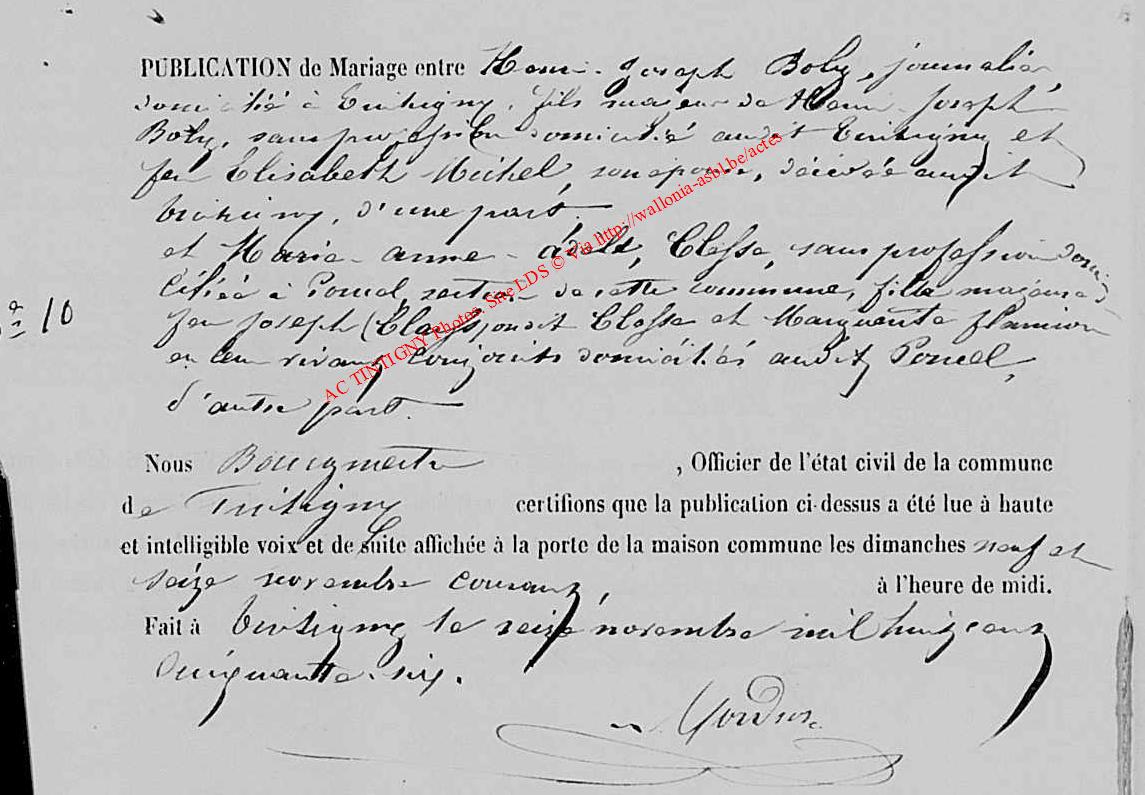 PUBLICATION de Mariage entre Henri-Joseph Boly, journalier
domicilié à Tintigny, fils majeur de Henri-Joseph
Boly, sans profession domicilié audit Tintigny et
feu Elisabeth Michel, son épouse, décédée audit
Tintigny, d'une part.
et Marie-anne-, Closse, sans profession domi
ciliée à Poncel, section de cette commune, fille majeure de
feu Joseph ( Closse et Marguerite flamion
en leu vivant conjoints domiciliés audit Poncel,
d'autre part.
N° 10
Nous Bourgmestre , Officier de l'état civil de la commune
de Tintigny certifions que la publication ci-dessus a été lue à haute
et intelligible voix et de suite affichée à la porte de la maison commune les dimanches neuf et
seize novembre courant, à l'heure de midi.
Fait à Tintigny le seize novembre mil huit cent
Cinquante-six.
AC TINTIGNY Photos. Site LDS © Via http://wallonia-asbl.be/actes